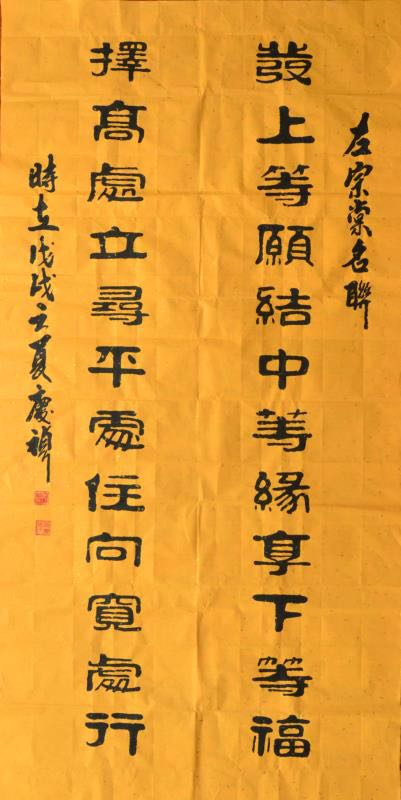 左宗棠名聯
發上等願結中等緣享下等福
擇高處立尋平處住向寬處行
時在戊戌之夏慶禪